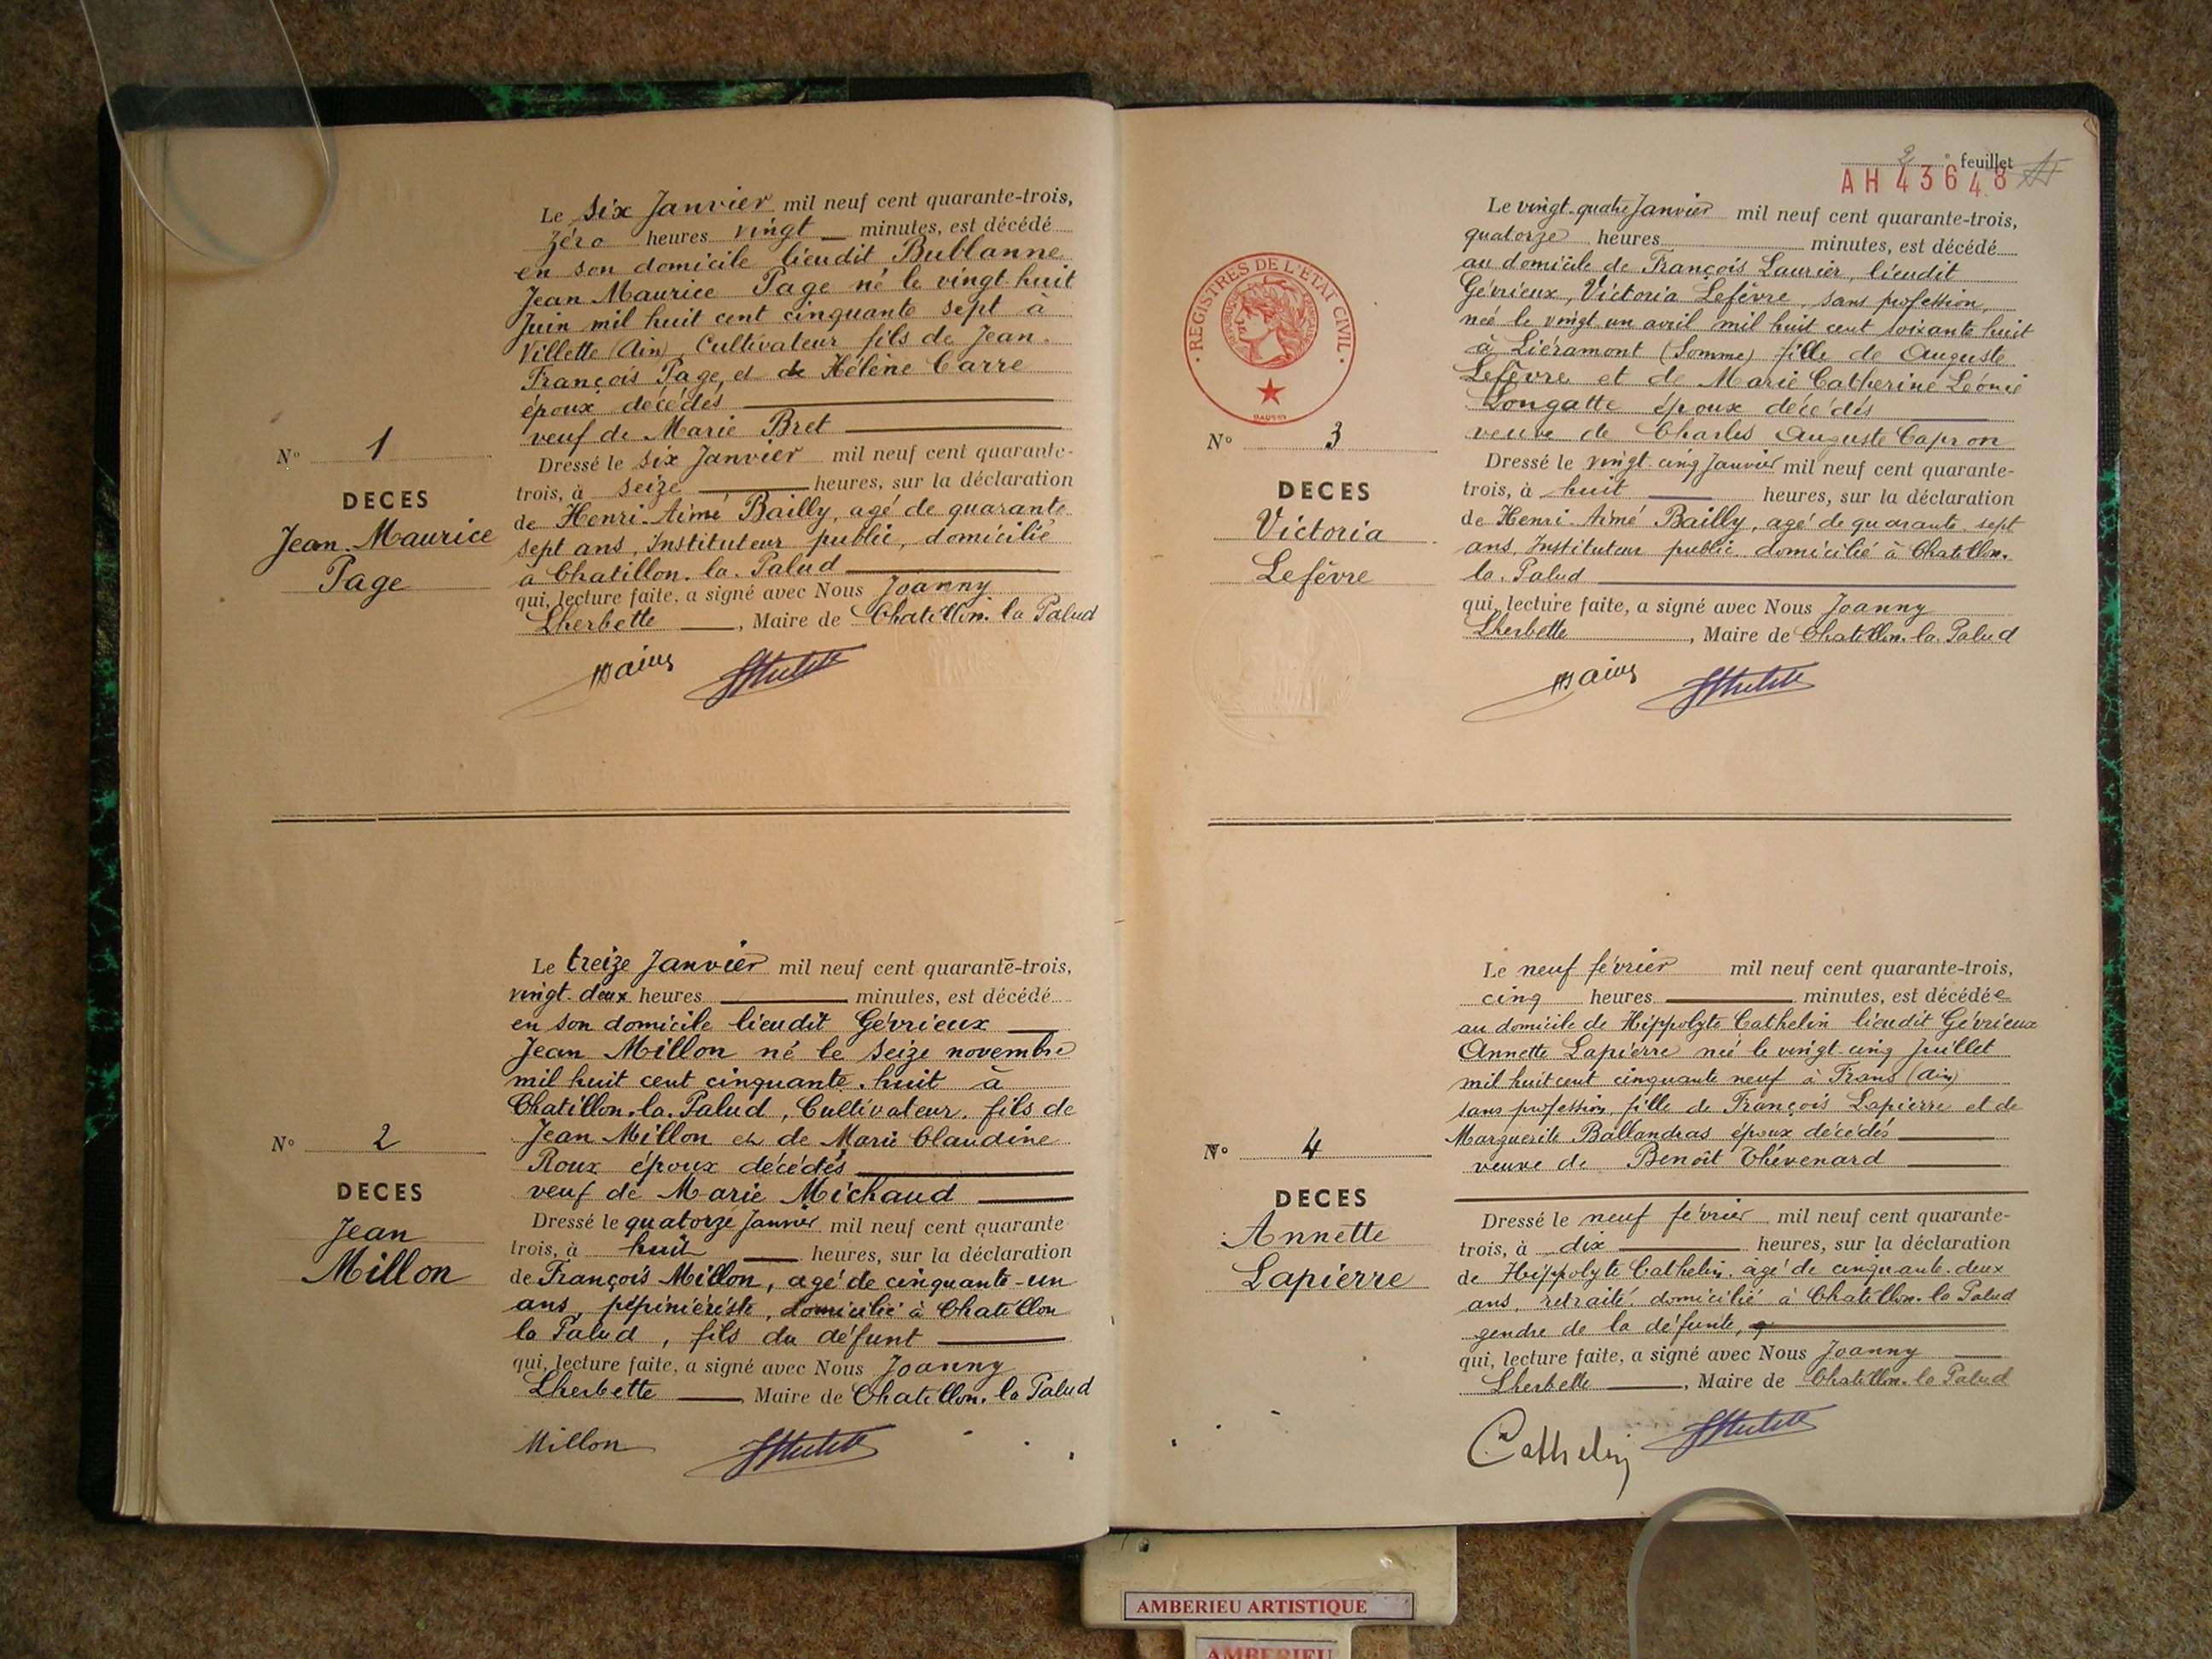 Le six Janvier mil neuf cent quarante-trois,
zéro heures vingt minutes, est décédé
en son domicile lieudit Bublanne
Jean Maurice Page né le vingt-huit
Juin mil huit cent cinquante sept à
Villette (Ain), Cultivateur fils de Jean-
François Page, et de Hélène Carre
époux décédés
veuf de Marie Bret
N° 1
DECES
Jean-Maurice
Page
Dressé le six Janvier mil neuf cent quarante-
trois, à seize heures, sur la déclaration
de Henri-Aimé Bailly, agé de quarante
sept ans, Instituteur public, domicilié
à Chatillon-la-Palud
qui, lecture faite, a signé avec Nous Joanny
Lherbette, Maire de Chatillon-la Palud
Le treize Janvier mil neuf cent quarante-trois,
vingt-deux heures minutes, est décédé
en son domicile lieudit Gévrieux
Jean Millon né le seize novembre
mil huit cent cinquante-huit à
Chatillon-la-Palud, Cultivateur, fils de
Jean Millon et de Marie Claudine
Roux époux décédés
veuf de Marie Michaud
N° 2
DECES
Jean
Millon
Dressé le quatorze Janvier mil neuf cent quarante
trois, à huit heures, sur la déclaration
de François Millon, agé de cinquante-un
ans, pépiniériste, domicilié à Chatillon
la Palud, fils du défunt
qui, lecture faite, a signé avec Nous Joanny
Lherbette, Maire de Chatillon-la Palud
Millon
2 feuillet
AH 43648
Le vingt-quatre Janvier mil neuf cent quarante-trois,
quatorze heures minutes, est décédé
au domicile de François Laurier, lieudit
Gévrieux, Victoria Lefèvre, sans profession,
née le vingt un avril mil huit cent soixante huit
à Liéramont (Somme) fille de Auguste
Lefèvre et de Marie Catherine Léonie
Longatte époux décédés
veuve de Charles Auguste Capron
REGISTRES DE L'ETAT CIVIL
N° 3
DECES
Victoria
Lefèvre
Dressé le vingt-cinq Janvier mil neuf cent quarante-
trois, à huit heures, sur la déclaration
de Henri-Aimé Bailly, agé de quarante-sept
ans, Instituteur public domicilié à Chatillon-
la-Palud
qui, lecture faite, a signé avec Nous Joanny
Lherbette, Maire de Chatillon-la-Palud
Le neuf février mil neuf cent quarante-trois,
cinq heures minutes, est décédée
au domicile de Hippolyte Cathelin lieudit Gévrieux
Annette Lapierre née le vingt-cinq Juillet
mil huit cent cinquante neuf à Frans (Ain)
sans profession, fille de François Lapierre et de
Marguerite Ballandras époux décédés
veuve de Benoît Thévenard
N° 4
DECES
Annette
Lapierre
Dressé le neuf février mil neuf cent quarante-
trois, à dix heures, sur la déclaration
de Hippolyte Cathelin, agé de cinquante-deux
ans, retraité, domicilié à Chatillon-la Palud
gendre de la défunte,
qui, lecture faite, a signé avec Nous Joanny
Lherbette, Maire de Chatillon-la Palud
Cathelin
AMBERIEU ARTISTIQUE
AMBERIEU